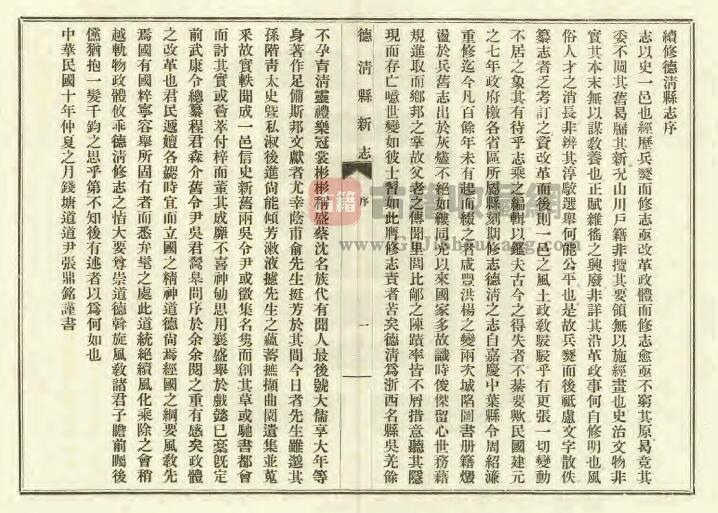 續修德清縣志序
志以史一邑也經歷兵燹而修志亟改革政體而修志愈亟不窮其原曷竟其
委不聞其舊曷屬其新况山川戶籍非攬其要領無以施經畫也史治文物非
實其本末無以謀教養也正賦雜徭之興廢非詳其沿革政事何自修明也風
俗人才之消長非辨其淳駁選舉何能公平也是故兵燹而後祇慮文字散佚
纂志者之考訂之資改革而後則一邑之風土政敎駸駸乎有更張一切變動
不居之象其有待乎志乘之編輯以鑑夫古今之得失者不綦要歟民國建元
之七年政府檄各省區所屬縣刻期修志德清之志自嘉慶中葉縣令周紹濂
重修迄今凡百餘年未有起而綴之者咸豐洪楊之變兩次城陷圖書册籍燬
盪於兵舊志出於灰燼不絕如縷同光以來國家多故識時俊傑留心世務籍
規進取而鄉邦之掌故父老之傳聞里閭比鄰之陳蹟率皆不屑措意聽其隱
現而存亡噫世變如彼士習如此膺修志責者苦矣德清爲浙西名縣吳羌餘
德清縣新志
序
一
不孕育清靈禮樂冠裳彬彬稱盛蔡沈名族代有聞人最後號大儒享大年等
身著作足備斯邦文獻者尤幸蔭甫俞先生挺芳於其間今日者先生雖邈其
孫階靑太史曁私淑後進尙能傾芳漱液攄先生之蘊蓄摭擷曲園遺集並蒐
釆故實軼聞成一邑信史新舊兩吳令尹或徵集名雋而創其草或馳書都會
而討其實或薈萃付梓而董其成靡不喜神劬思用襄盛舉於戲懿已稾旣定
前武康令總纂程君森介舊令尹吳君鬵臯問序於余余閱之重有感矣政體
之改革也君民遞嬗各趨時宜而立國之精神道德尙焉經國之綱要風敎先
焉國有國粹寧容舉所固有者而悉弁髦之處此道統絕續風化乘除之會稍
越軌物政體攸乖德清修志之恉大要尊崇道德斡旋風敎諸君子瞻前矚後
儻猶抱一髮千鈞之思乎第不知後有述者以爲何如也
中華民國十年仲夏之月錢塘道道尹張鼎銘謹書
古籍收藏網
www.GuJiShouCang.com